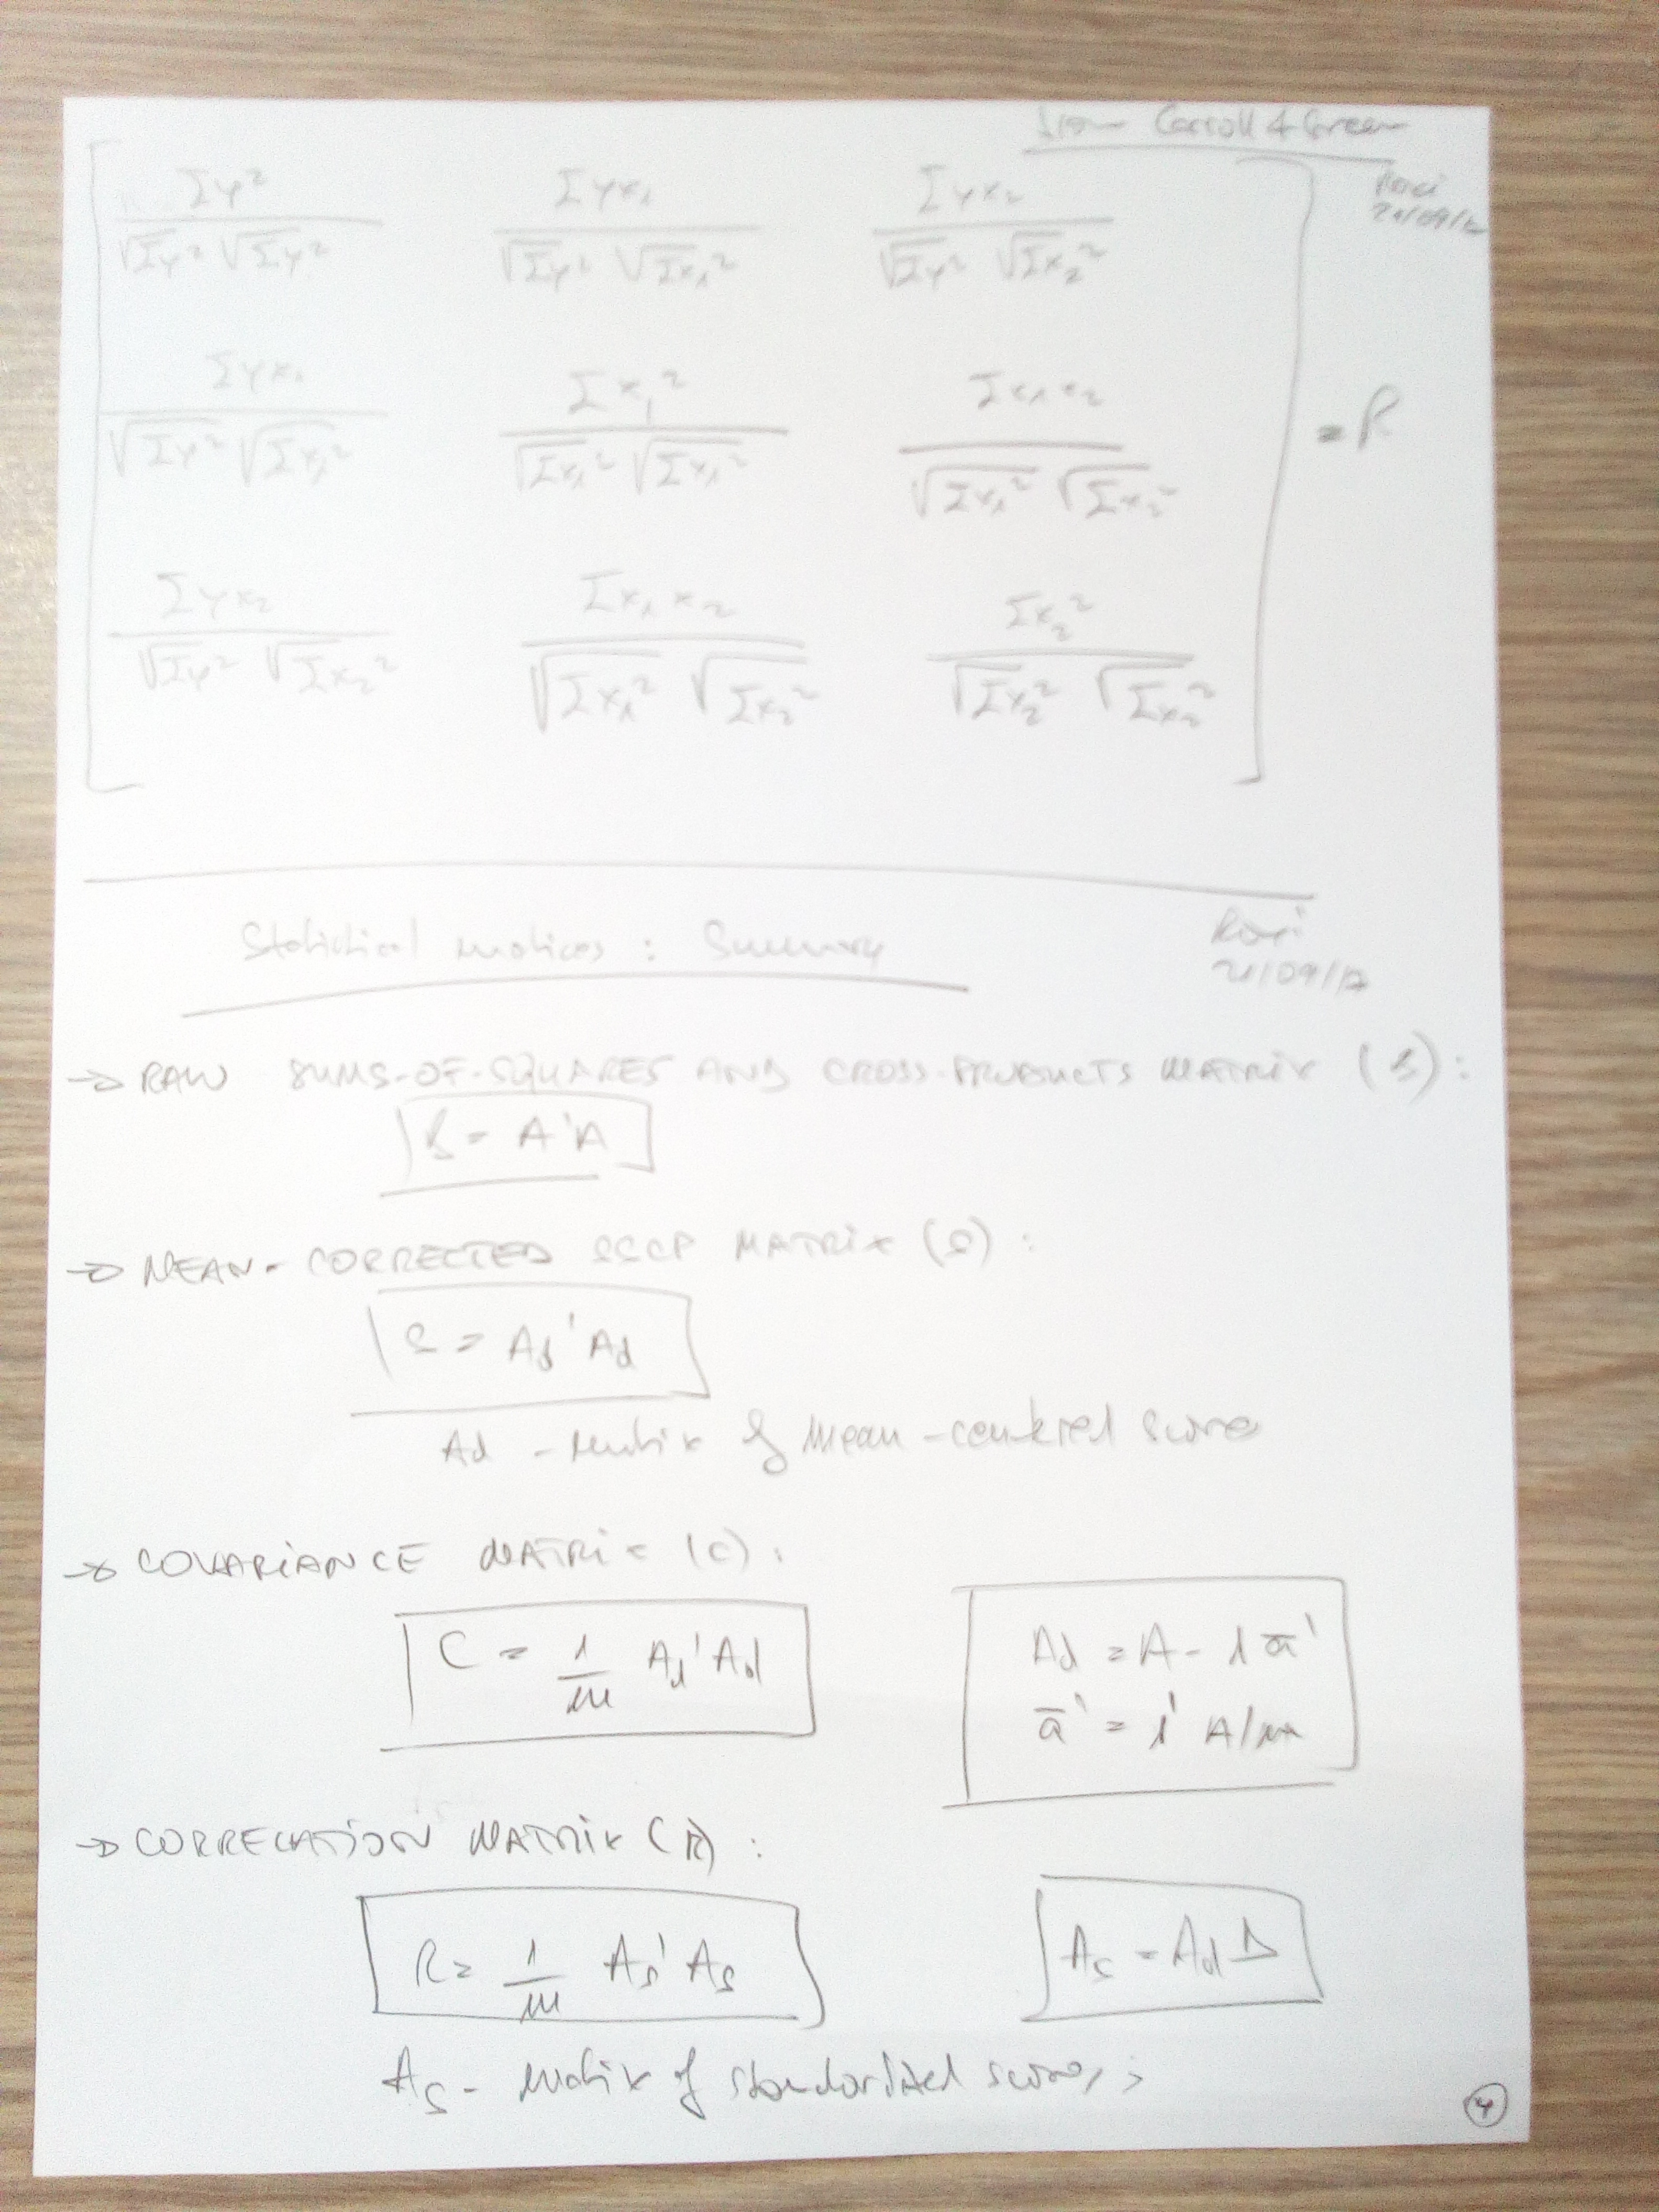 from Carroll & Green
21/09/17
Σy² Σyx₁ Σyx₂
√Σy² √Σy² √Σy² √Σx₁² √Σy² √Σx₂²
Σyx₁ Σx₁² Σx₁x₂
= R
√Σy² √Σx₁² √Σx₁² √Σx₁² √Σx₁² √Σx₂²
Σyx₂ Σx₁x₂ Σx₂²
√Σy² √Σx₂² √Σx₁² √Σx₂² √Σx₂² √Σx₂²
Statistical matrices : Summary
21/09/17
→ RAW SUMS-OF-SQUARES AND CROSS-PRODUCTS MATRIX (B) :
B = A'A
→ MEAN-CORRECTED SSCP MATRIX (S) :
S = Ad'Ad
Ad - matrix of mean-centered scores
→ COVARIANCE MATRIX (C) :
C = 1/m Ad'Ad
Ad = A - 1ā'
ā' = 1' A/m
→ CORRELATION MATRIX (R) :
R = 1/m As'As
As = Ad D
As - matrix of standardized scores ;
4